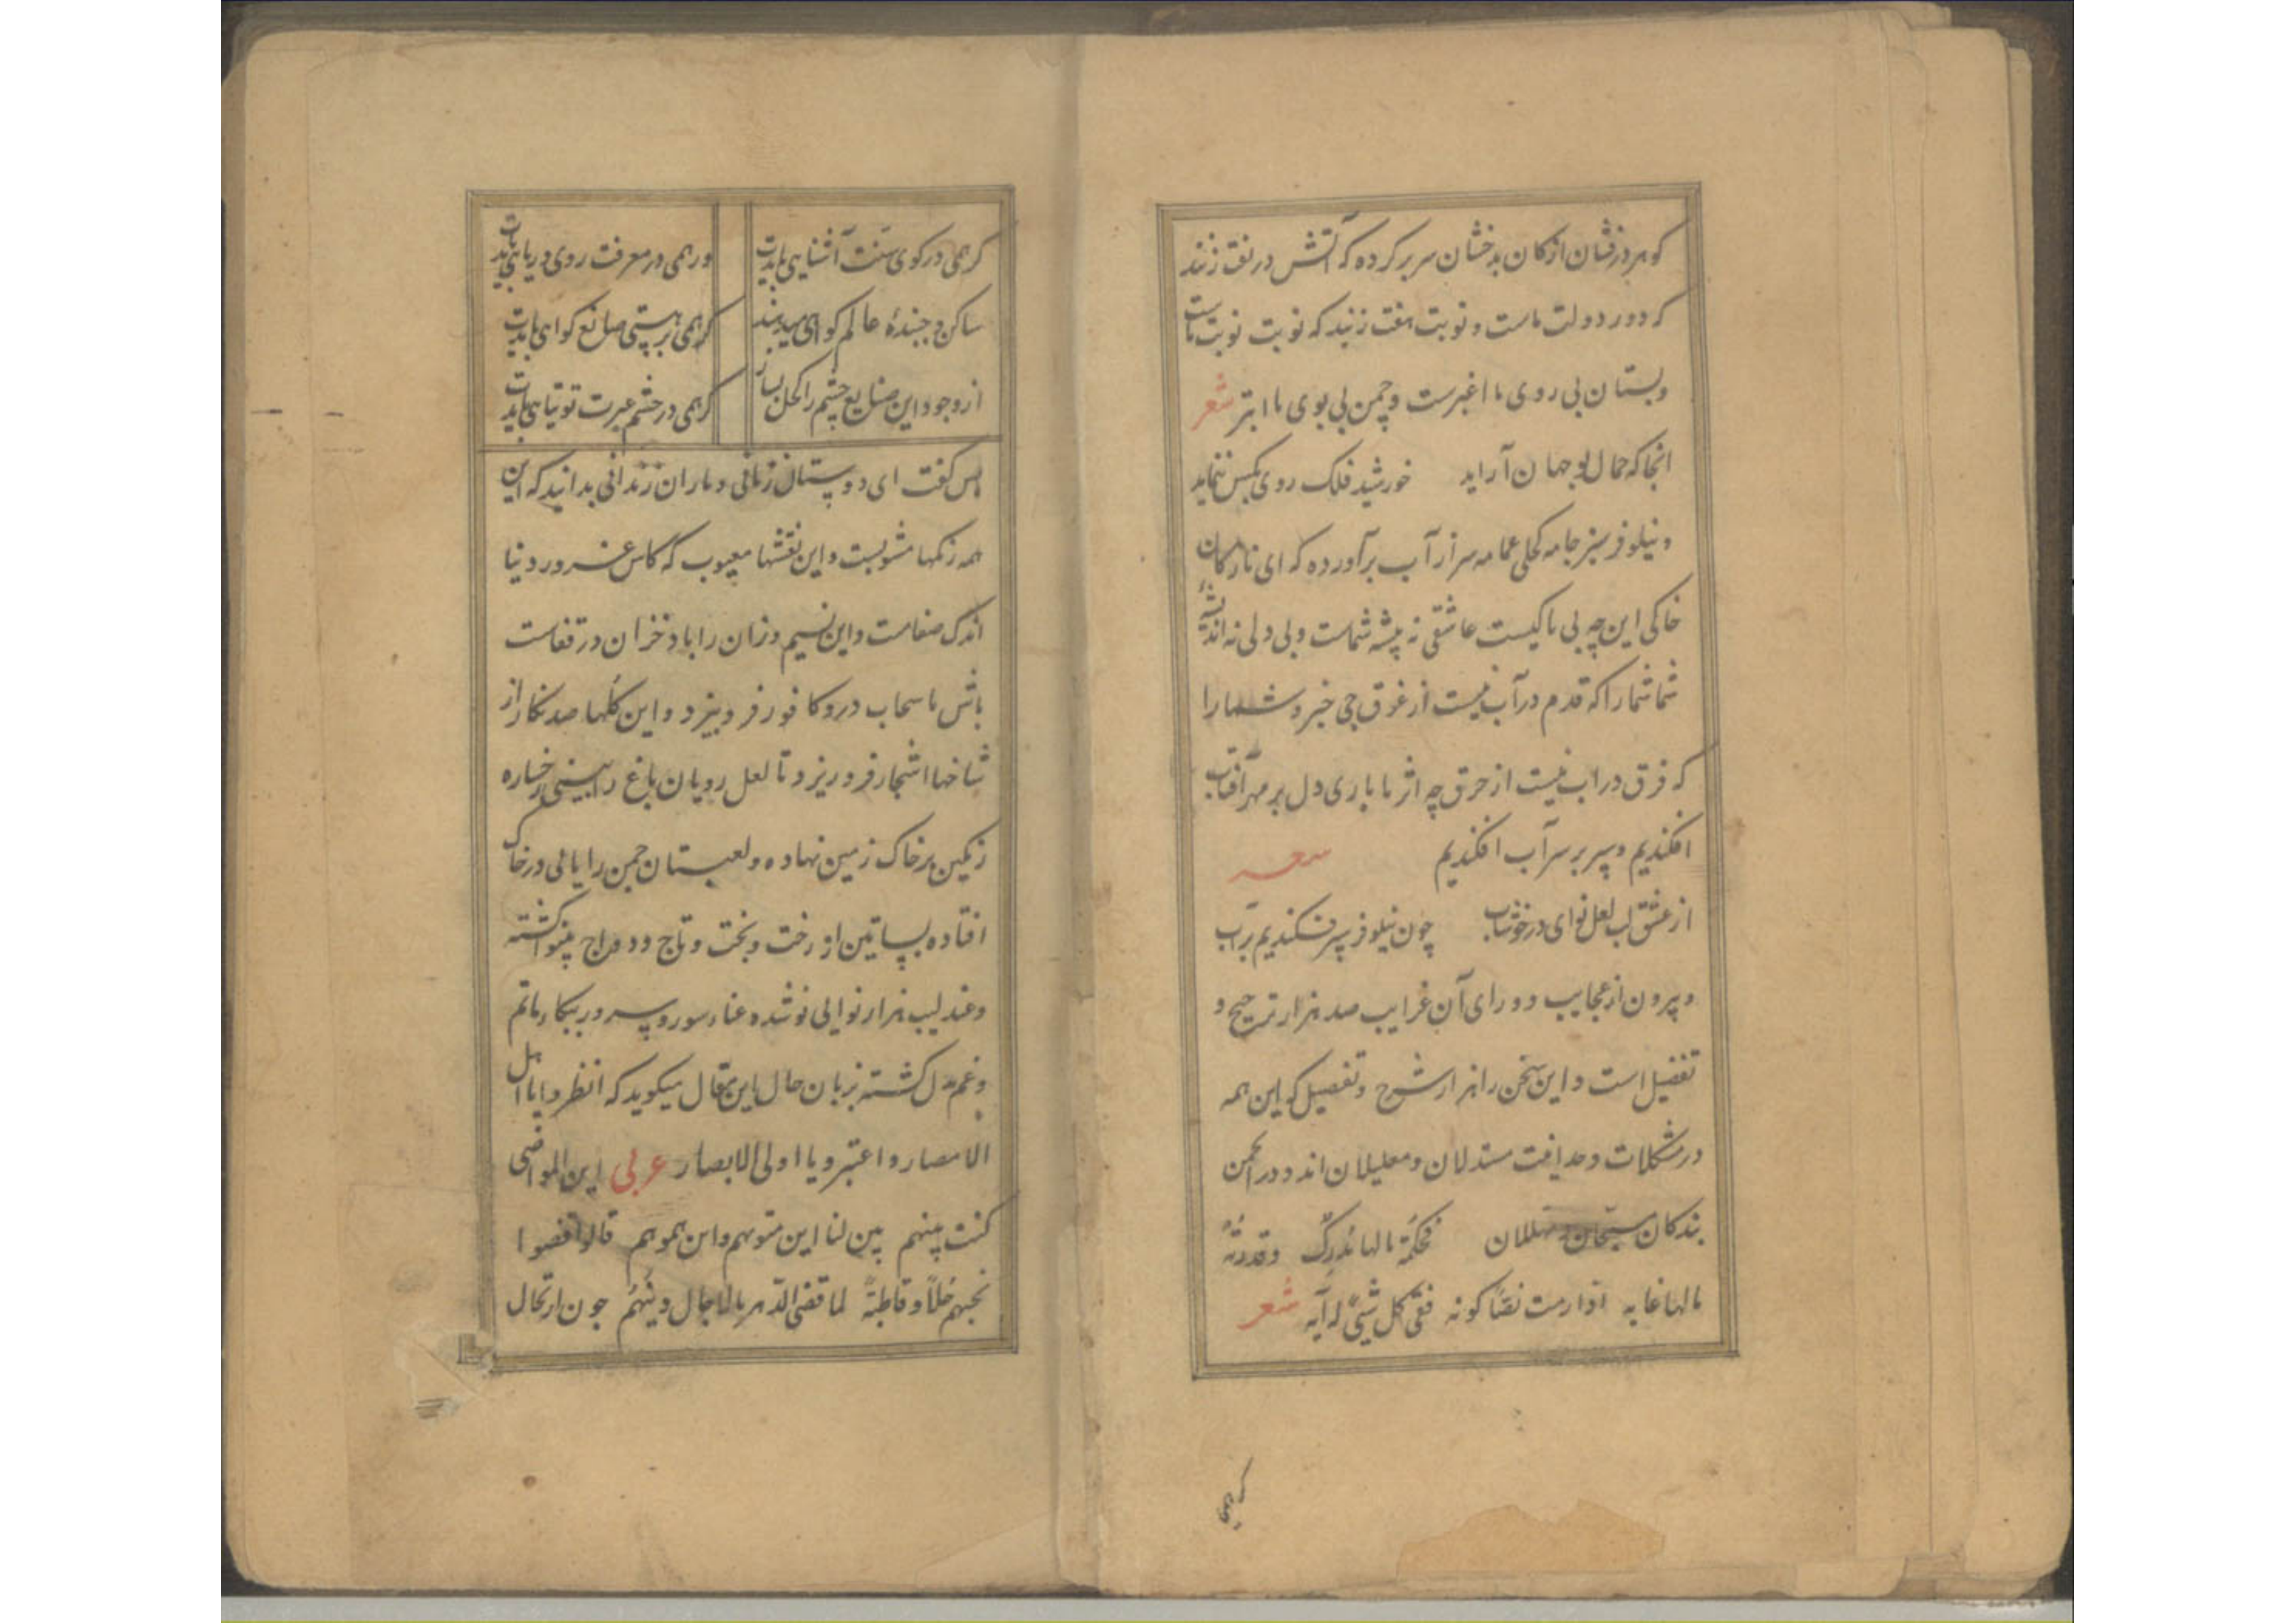 کوهر درفشان از کان بدخشان سر بر کرده که آتش در نفت زنند
که دور دولت ماست و نوبت هفت زنید که نوبت نوبت ماست
و بستان بی روی ما اغبرست و چمن بی بوی ما ابتر شعر
انجا که جمال تو جهان آراید خورشید فلک روی بکس ننماید
و نیلوفر سبز جامه کحلی عمامه سر از آب برآورده که ای نازکان
خاکی این چه بی باکیست عاشقی نه پیشه شماست و بی دلی نه اندیشهٔ
شما شما را که قدم در آب نیست از غرق چی خبر و شما را
که فرق در اب نیست از حرق چه اثر ما باری دل بر مهر آفتاب
افکندیم و سپر بر سر آب افکندیم شعر
از عشق لب لعل تو ای در خوشاب چون نیلوفر سپر فکندیم بر آب
و بیرون از عجایب و ورای آن غرایب صد هزار ترجیح و
تفضیل است و این سخن را هزار شرح و تفصیل که این همه
در مشکلات وحدانیت مستدلان و معللان اند و در انجمن
بندکان مسبحان و مهللان فحکمة مالها مدرک و قدرته
مالها غایه اذا رمت نصا کونه ففی کل شیئ له آیه شعر
کر همی
کر همی در کوی سنت آشنایی بایدت ور همی در معرفت روی و ریایی بایدت
ساکن و جنبندهٔ عالم کواهی میدهند کر همی بر هستی صانع کواهی بایدت
از وجود این صنایع چشم را کحل بساز کر همی در چشم عبرت توتیایی بایدت
پس کفت ای دوستان زمانی و یاران زندانی بدانید که این
همه رنکها مشوبست و این نقشها معیوب که کاس غرور دنیا
اندک صفاست و این نسیم وزان را باد خزان در قفاست
باش تا سحاب در و کافور فرو بیزد و این کلها صد نکار از
شاخها اشجار فرو ریزد تا لعل رویان باغ را بینی رخساره
رنکین بر خاک زمین نهاده و لعبتان چمن را یابی در خاک
افتاده بساتین از رخت و بخت و تاج و دواج بینوا کشته
و عندلیب هزار نوا بی نوشده و غناء سور و سرور ببکاء ماتم
و غم بدل کشته بزبان حال این مقال میکوید که انظروا یا اهل
الامصار و اعتبرو یا اولی الابصار عربی این المواضی
کنت بینهم بین لنا این متوبهم و این همو هم قالوا قضوا
نحبهم کلاً و قاطبةً لما قضی الدهر بالاجال دینهُم چون ارتحال